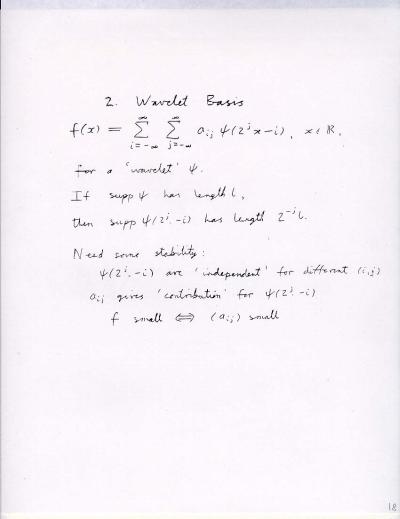 2. Wavelet Basis
f(x) = ∑_{i=-∞}^{∞} ∑_{j=-∞}^{∞} a_{ij} ψ(2^j x - i), x ∈ ℝ,
for a 'wavelet' ψ.
If supp ψ has length l,
then supp ψ(2^j· - i) has length 2^{-j} l.
Need some stability:
ψ(2^j· - i) are 'independent' for different (i,j)
a_{ij} gives 'contribution' for ψ(2^j· - i)
f small ⟺ (a_{ij}) small
18